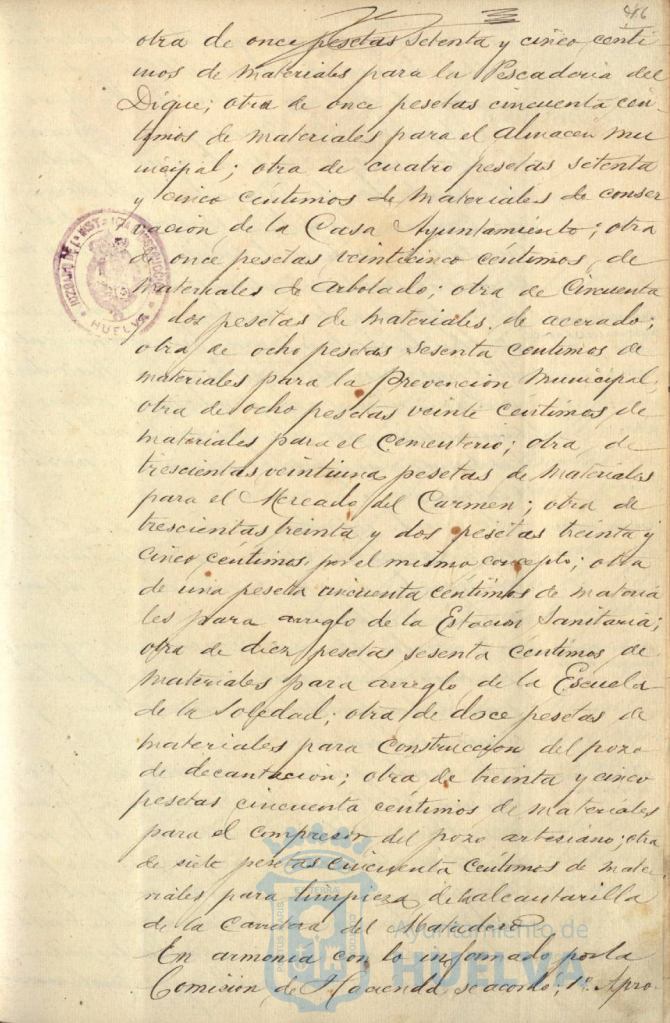 46
otra de once pesetas setenta y cinco centi
mos de materiales para la Pescaderia del
Dique; otra de once pesetas cincuenta cén
timos de materiales para el almacen mu
nicipal; otra de cuatro pesetas setenta
y cinco céntimos de materiales de conser
vación de la Casa Ayuntamiento; otra
de once pesetas veinticinco céntimos de
materiales de arbolado; otra de Cincuenta
dos pesetas de materiales de acerado;
otra de ocho pesetas sesenta centimos de
materiales para la Prevencion Municipal,
otra de ocho pesetas veinte centimos de
materiales para el Cementerio; otra de
trescientas veintiuna pesetas de materiales
para el Mercado del Carmen; otra de
trescientas treinta y dos pesetas treinta y
cinco centimos por el mismo concepto; otra
de una peseta cincuenta centimos de materia
les para arreglo de la Estación Sanitaria;
otra de diez pesetas sesenta centimos de
materiales para arreglo de la Escuela
de la Soledad; otra de doce pesetas de
materiales para construccion del pozo
de decantación; otra de treinta y cinco
pesetas cincuenta céntimos de materiales
para el compresor del pozo artesiano; otra
de siete pesetas cincuenta centimos de mate
riales para limpieza de la alcantarilla
de la Carretera del Matadero
En armonia con lo informado por la
Comisión de Hacienda se acordó; 1º Apro-
HUELVA
Ayuntamiento de
HUELVA